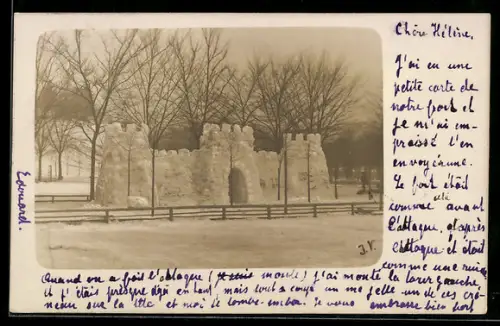 Chère Hélène,
J'ai eu une
petite carte de
notre fort et
je m'ai em-
praissé d'en
envoyé une.
Le fort était
comme cela avant
l'attaque, et après
l'attaque il était
comme une ruine
Quand on a fait l'attaque ( monté) j'ai monté la tour gauche,
et j'étais presque déjà en haut mais tout à coup un me jette un de ces cro-
neau sur la tête et moi je tombe en bas. Je vous embrasse bien fort
Edouard.
J.V.